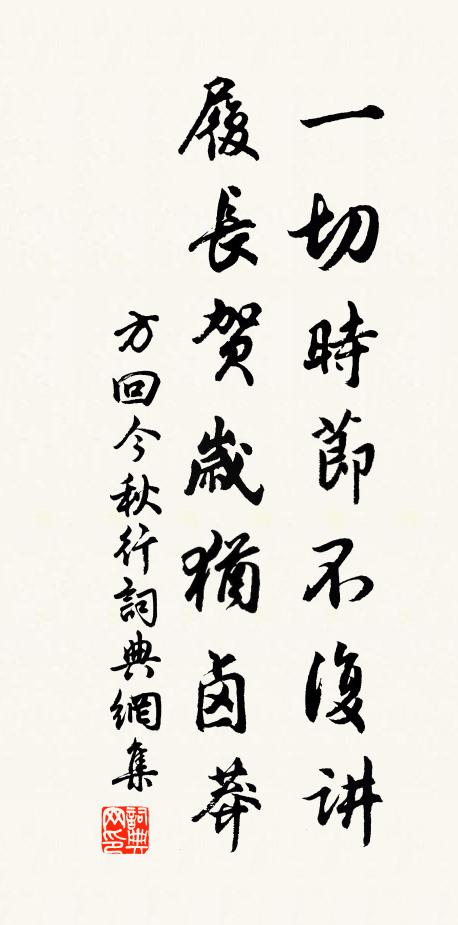 一切時節不復讲
履長贺歲猶卤莽
方回今秋行詞典網集
詞典网印